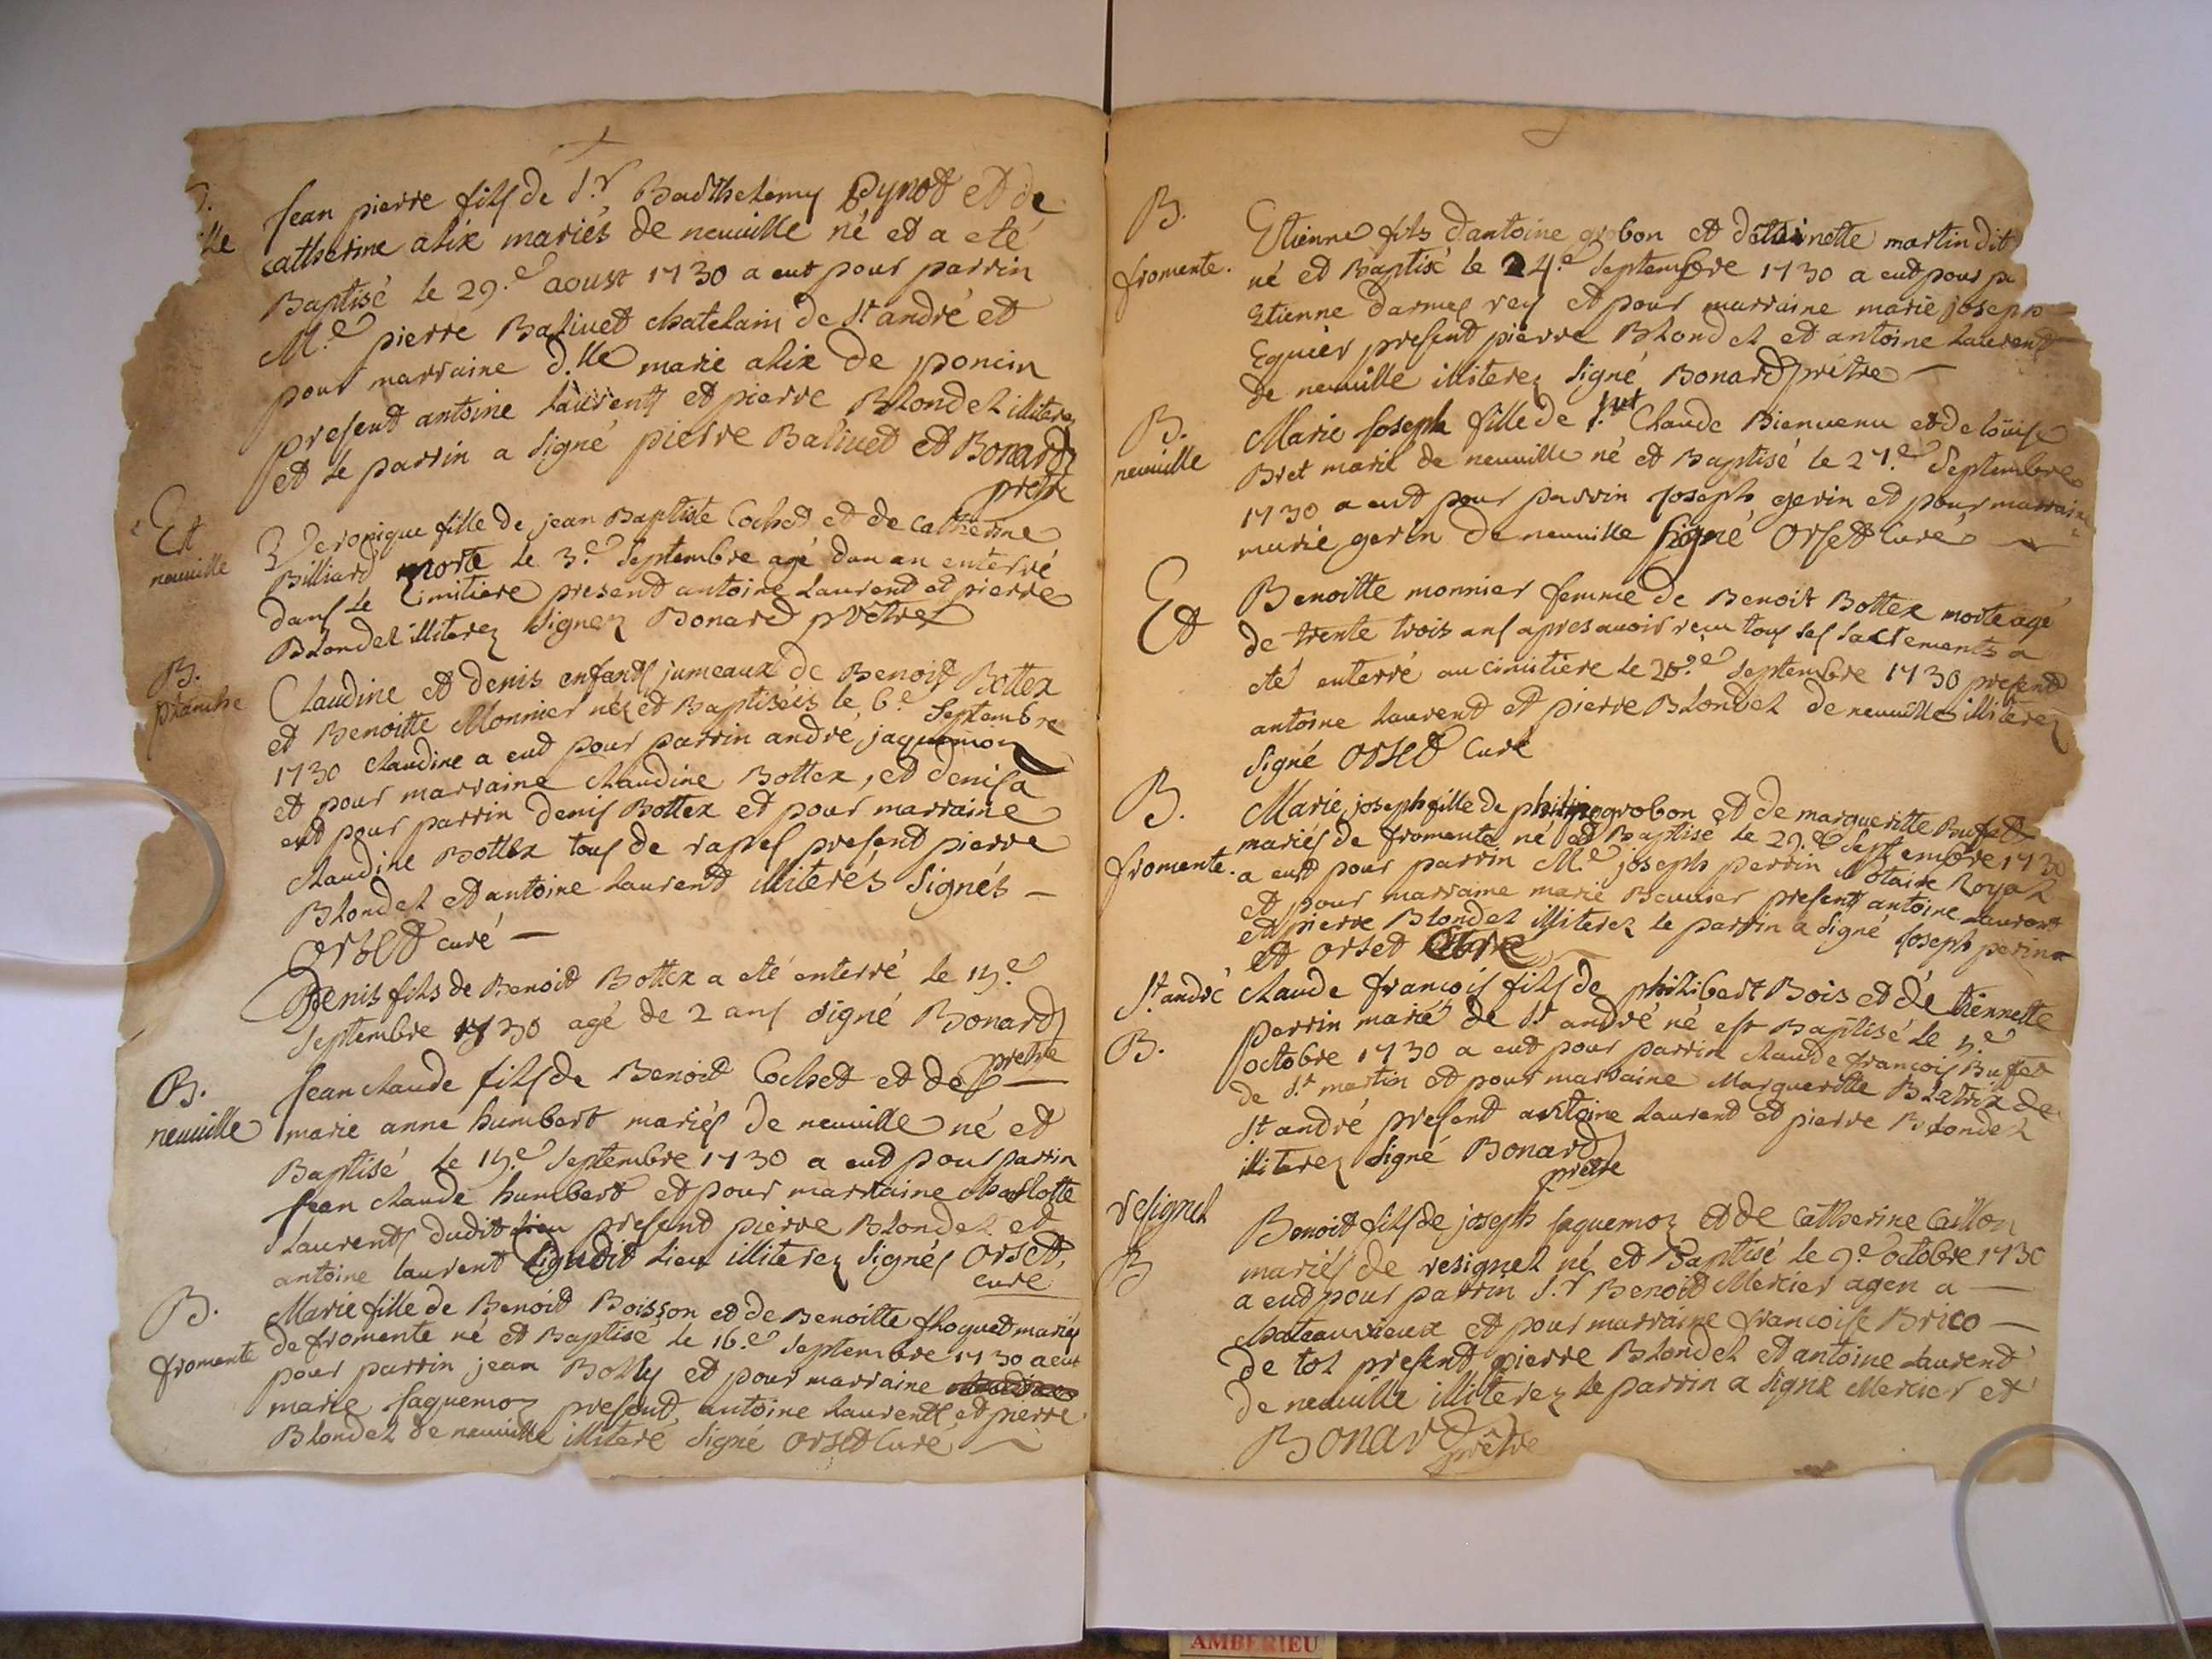 B.
lle
Jean pierre fils de S.r Barthelemy Pynot et de
catherine alix mariés de neuuille né et a eté
Baptisé le 29.e aoust 1730 a eut pour parrin
M.e pierre Baliuet chatelain de St andré et
pour marraine d.lle marie alix de poncin
present antoine laurent et pierre Blondel illiterez
et le parrin a signé pierre Baliuet et Bonard
pretre
Et
neuuille
Veronique fille de jean Baptiste Cochet et de Catherine
Billiard morte le 3.e Septembre agé dun an enterré
dans le Cimitiere present antoine Laurent et pierre
Blondel illiterez signez Bonard prêtre
B.
planche
Claudine et denis enfants jumeaux de Benoit Bottex
et Benoitte Monnier néz et Baptiséis le 6.e Septembre
1730 claudine a eut pour parrin andre jaquemoz
et pour marraine claudine Bottex, et denis a
eut pour parrin denis Bottex et pour marraine
claudine Bottex tous de rapes present pierre
Blondel et antoine laurent illiterés signés —
orset curé —
Denis fils de Benoit Bottex a eté enterré le 15.e
Septembre 1730 agé de 2 ans signé Bonard
pretre
B.
neuuille
Jean claude fils de Benoit Cochet et de —
marie anne humbert mariés de neuuille né et
Baptisé le 15.e Septembre 1730 a eut pour parrin
Jean claude humbert et pour marraine charlotte
laurent dudit lieu present pierre Blondel et
antoine laurent dudit lieu illiterez signés orset
cure
B.
fromente
Marie fille de Benoit Boisson et de Benoitte floquet mariés
de fromente né et Baptisé le 16.e Septembre 1730 a eut
pour parrin jean Bolly et pour marraine
marie jaquemoz present antoine laurent et pierre
Blondel de neuuille illiteré signé orset Curé
B.
fromente.
Etienne fils dantoine grobon et detiennette martin dit
né et Baptisé le 24.e Septembre 1730 a eut pour pa
Etienne darmes rey et pour marraine marie joseph
Equier present pierre Blondel et antoine laurent
de neuuille illiterez signé Bonard prétre —
B.
neuuille
Marie Joseph fille de Claude Bienuenu et de loüise
Bret marié de neuuille né et Baptisé le 27.e Septembre
1730 a eut pour parrin Joseph gerin et pour marraine
marie gerin de neuuille signé orset Curé
Et
Benoitte monnier femme de Benoit Bottex morte agé
de trente trois ans apres auoir reçu tous ses sacrements a
eté enterré au cimitiere le 28.e Septembre 1730 present
antoine laurent et pierre Blondel de neuuille illiterez
signé orset Curé
B.
fromente.
Marie joseph fille de philippe grobon et de margueritte Bufet
mariés de fromente né et Baptisé le 29.e Septembre 1730
a eut pour parrin M.e joseph perrin Notaire Royal
et pour marraine marie Beuuier present antoine laurent
et pierre Blondel illiterez le parrin a signé Joseph perrin
et orset Curé
St andré
B.
claude francois fils de philibert Bois et de tiennette
perrin mariés de St andré né est Baptisé le 5.e
octobre 1730 a eut pour parrin claude francois Bufet
de St martin et pour marraine Margueritte Blatrix de
St andré present antoine laurent et pierre Blondel
illiterez signé Bonard
prêtre
resignel
B
Benoit fils de joseph jaquemoz et de Catherine Caillon
mariés de resignel né et Baptisé le 9.e octobre 1730
a eut pour parrin S.r Benoit Mercier agen a —
chateauuieux et pour marraine francoise Brico —
de tol present pierre Blondel et antoine laurent
de neuuille illiterez le parrin a signe Mercier et
Bonard
prêtre
AMBERIEU